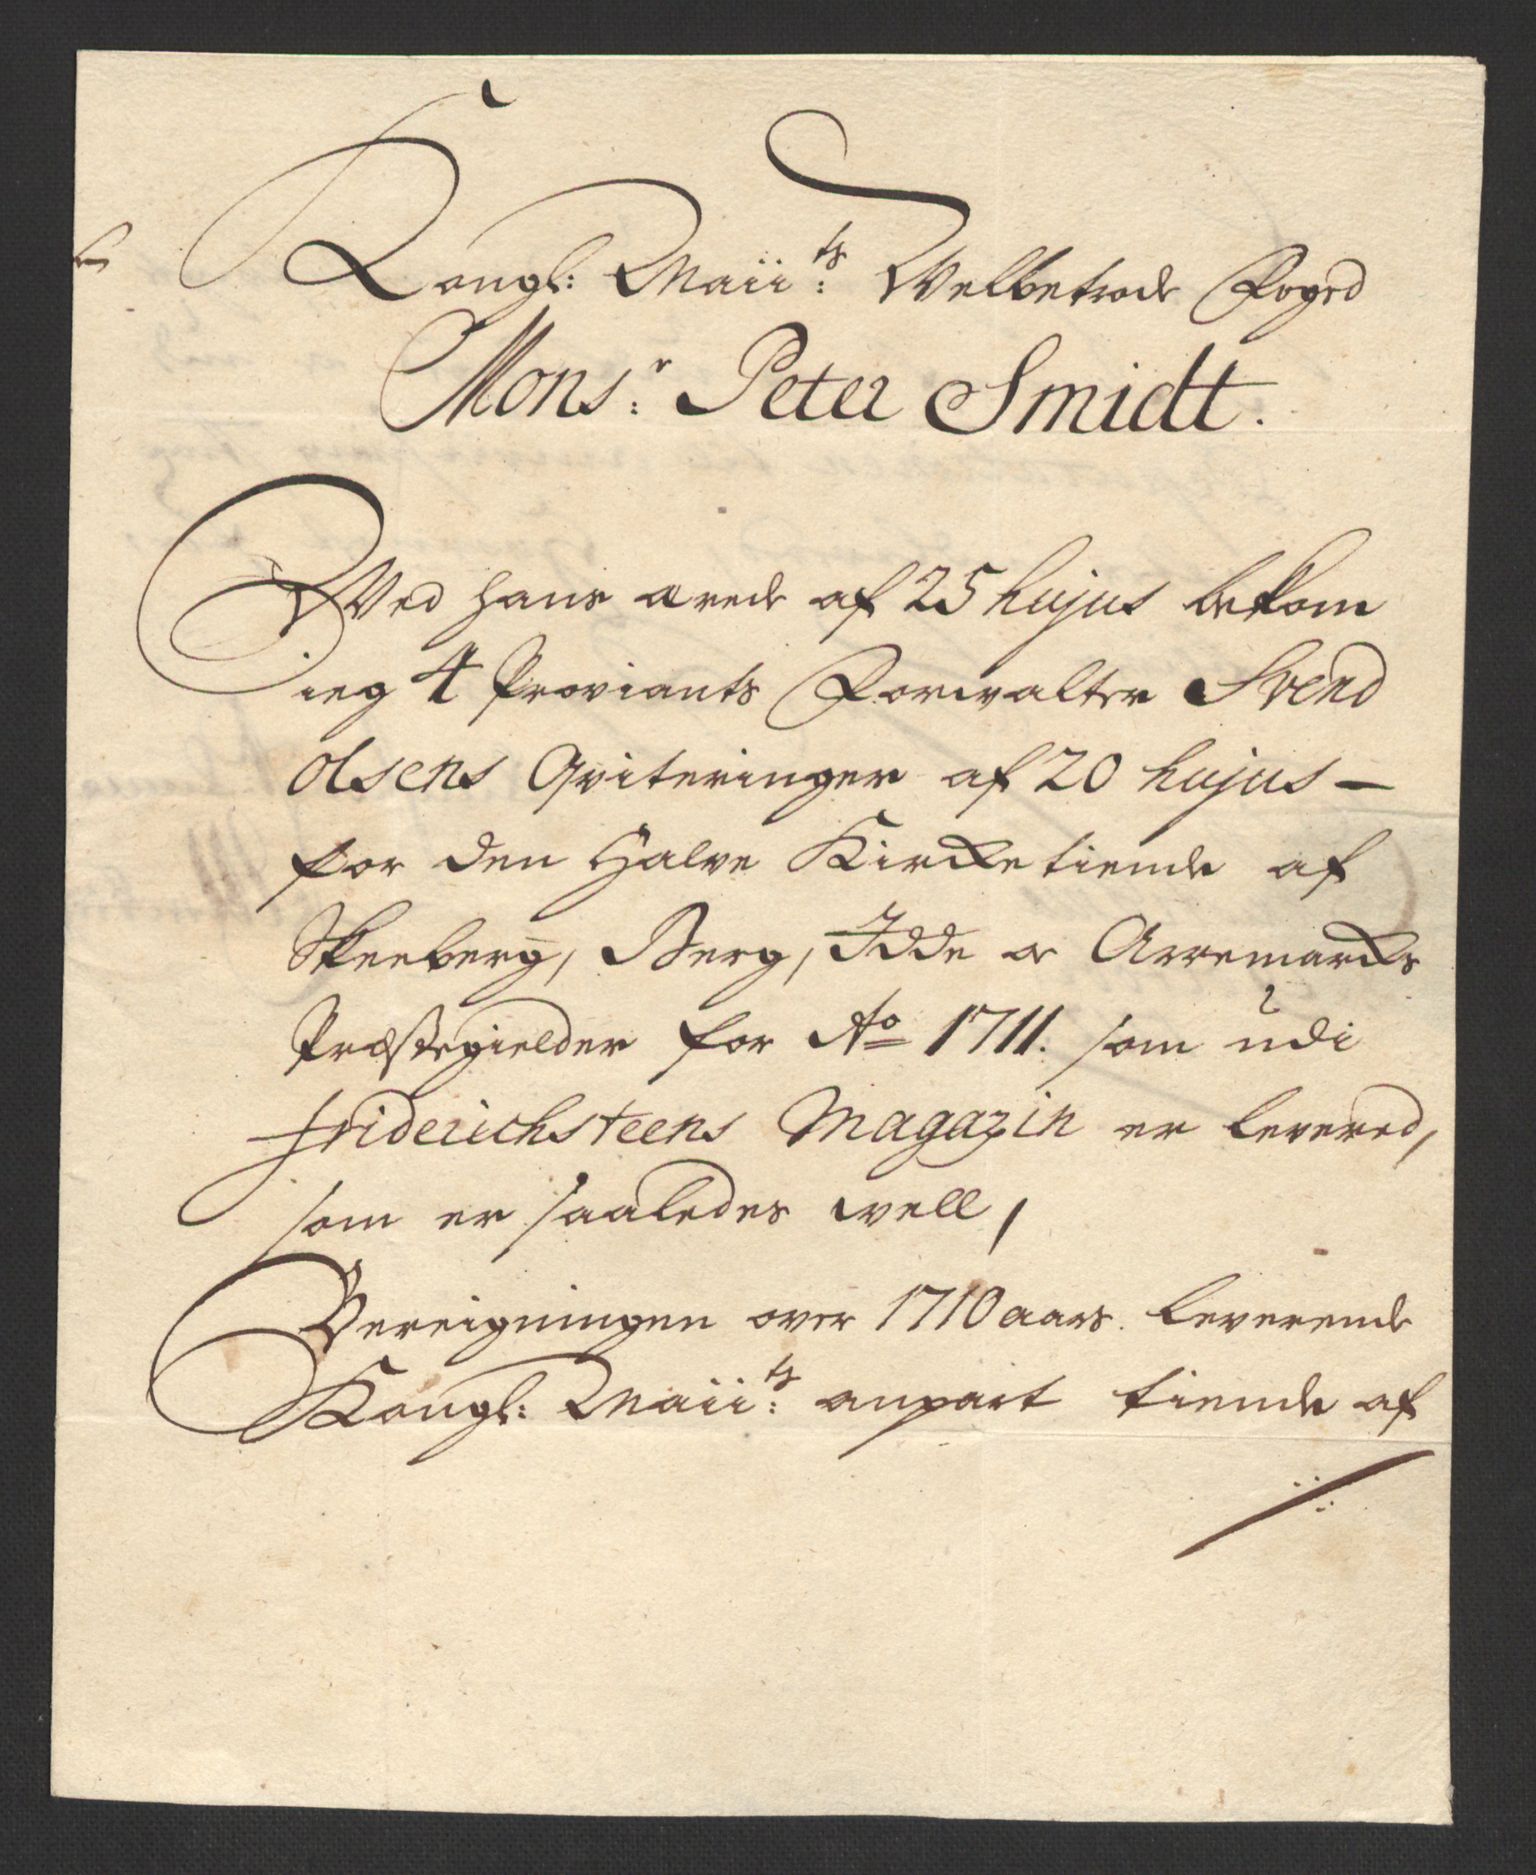 Kongl: Maii:ts Welbetrode Foged
Mons:r Peter Smidt.
Wed hans ærede af 25 hujus bekom
ieg 4 Proviants Forwalter Svend
olsens Qviteringer af 20 hujus –
for den Halve Kircketiende af
Skeeberg, Berg, Idde og Arremarcks
Præstegielder for Ao 1711. som udi
friderichsteens Magazin er levered,
som er saaledes well,
Bereigningen over 1710 aars leverende
Kongl: Maii:ts anpart tiende af